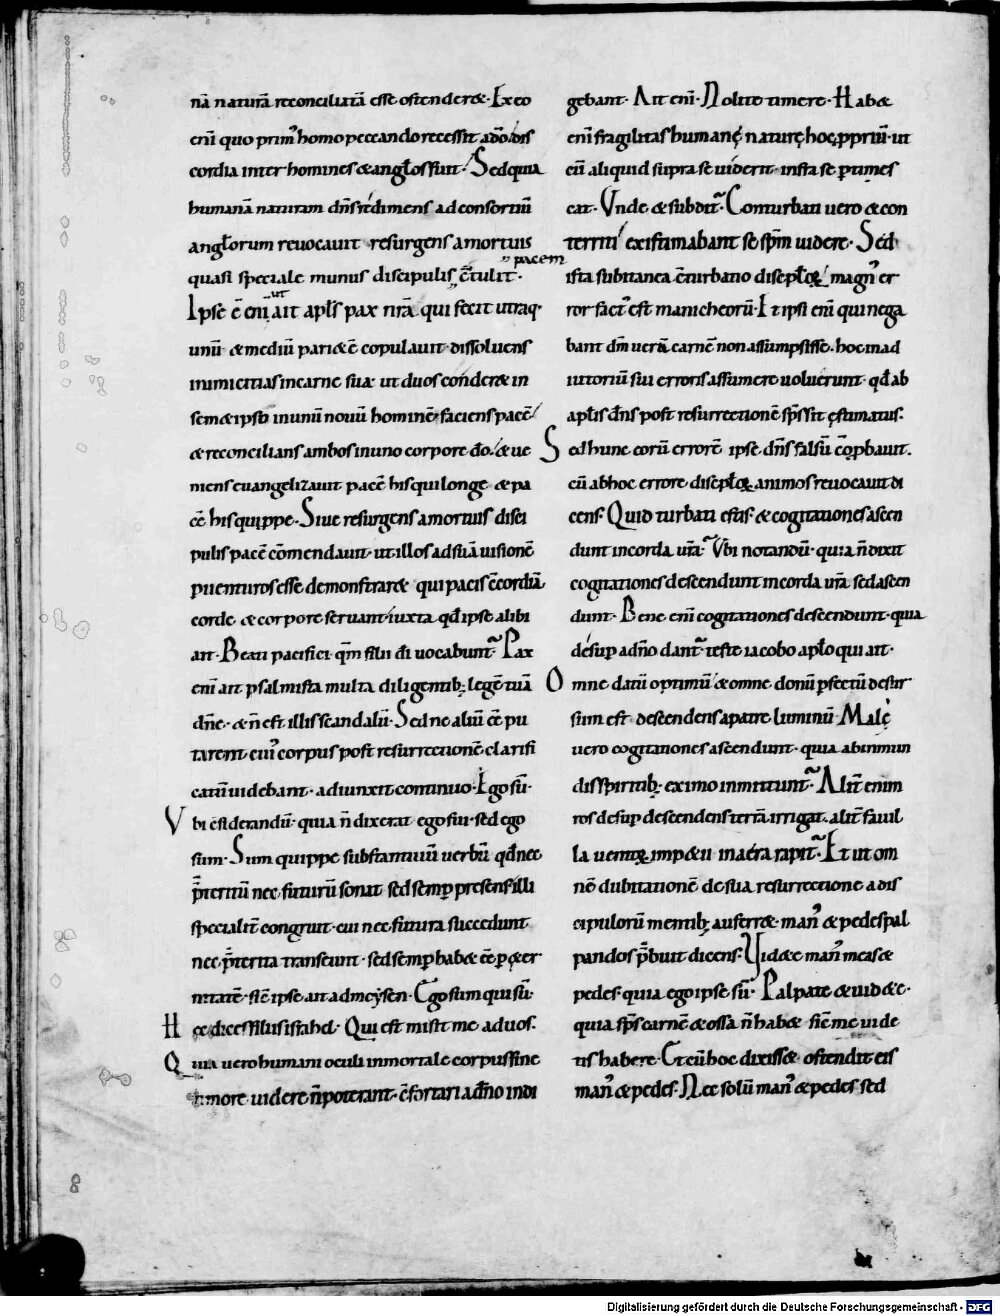 nā naturā reconciliatā esse ostenderet. Ex eo
enī quo primꝰ homo peccando recessit a dō. dis
cordia inter homines & angłos fuit. Sed quia
humanā naturam dn̄s redimens ad consortiū
angłorum reuocauit resurgens a mortuis
quasi speciale munus discipulis pacem cͦtulit.
Ipse ē enī ut ait apłs pax nr̄a. qui fecit utraq;
unū. & mediū pariete copulauit dissoluens
inimicitias in carne sua. ut duos conderet in
semetipso in unū nouū hominē faciens pacē
& reconcilians ambos in uno corpore dō. & ue
niens euangelizauit pacē his qui longe & pa
cē his qui ꝓpe. Siue resurgens a mortuis disci
pulis pacē cōmendauit. ut illos ad suā uisionē
puenturos esse demonstraret qui pacis c̄cordiā
corde & corpore seruant. iuxta qd̄ ipse alibi
ait. Beati pacifici qm̄ filii di uocabunt̃. Pax
enī ait psalmista multa diligentib; legē tuā
dn̄e. & n̄ est illis scandalū. Sed ne aliū ēē pu
tarent cuiꝰ corpus post resurrectionē clarifi
catū uidebant. adiunxit continuo. Ego sū.
Vbi c̄siderandū. quia n̄ dixerat ego fui. sed ego
sum. Sum quippe substantiuū uerbū qd̄ nec
p̄teritū nec futurū sonat sed semp presens illi
specialit̄ congruit. cui nec futura succedunt
nec p̄terita transeunt. sed semp habet ēē p & er
nitatē. sic̄ ipse ait ad meẏsen. Ego sum qui sū.
Hec dices filiis israhel. Qui est misit me ad uos.
Quia uero humani oculi inmortale corpus sine
timore uidere n̄ poterant. c̄fortari a dn̄o indi
gebant. Ait enī. Nolite timere. Habet
enī fragilitas humanę naturę hoc ꝓpriū. ut
cū aliquid supra se uiderit. infra se ptimes
cat. Vnde & subdit̃. Conturbati uero & con
territi existimabant se sp̄m uidere. Sed
ista subitanea c̄turbatio discipłoꝝ magnꝰ er
ror factꝰ est manicheorū. Et ipsi enī qui nega
bant dm̄ uerā carnē non assumpsisse. hoc in ad
iutoriū sui erroris assumere uoluerunt. qd̄ ab
apłis dn̄s post resurrectionē sp̄s sit ęstimatus.
Sed hunc eorū errorē ipse dn̄s falsū cōpbauit.
cū ab hoc errore discipłoꝝ animos reuocauit di
cens. Quid turbati estis. & cogitationes ascen
dunt in corda ur̄a. Vbi notandū. quia n̄ dixit
cogitationes descendunt in corda ur̄a sed ascen
dunt. Bene enī cogitationes descendunt. quia
desup a dn̄o dant̃. teste iacobo apło qui ait.
Omne datū optimū & omne donū pfectū desur
sum est descendens a patre luminū. Malę
uero cogitationes ascendunt. quia ab inmun
dis spiritib; ex imo inmittunt̃. Alit̄ enim
ros desup descendens terrā irrigat. alit̄ fauil
la uentoꝝ impetu in aera rapit̃. Et ut om
nē dubitationē de sua resurrectione a dis
cipulorū mentib; auferret. manꝰ & pedes pal
pandos p̄buit dicens. Videte manꝰ meas &
pedes. quia ego ipse sū. Palpate & uidete.
quia sp̄s carnē & ossa n̄ habet sic̄ me uide
tis habere. Et cū hoc dixisset ostendit eis
manꝰ & pedes. Nec solū manꝰ & pedes sed
Digitalisierung gefördert durch die Deutsche Forschungsgemeinschaft - DFG